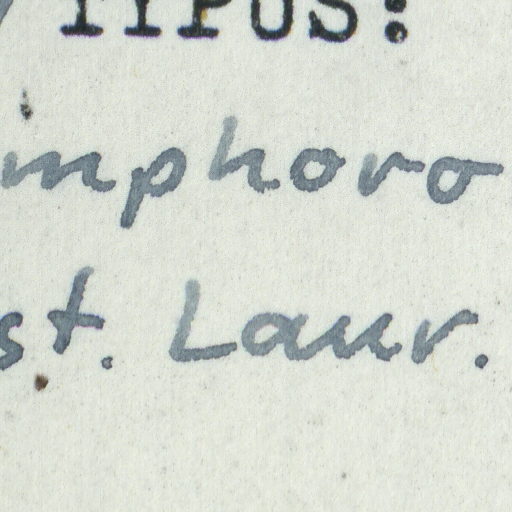 TYPUS:
mphoro
st. Laur.